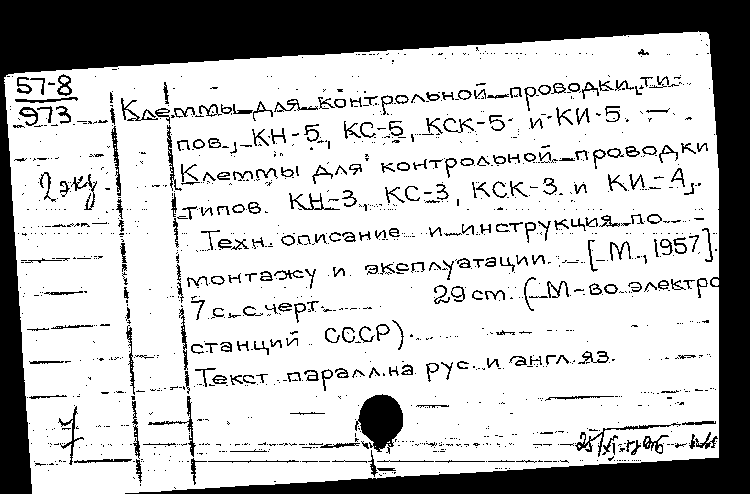 57-8
973
2 экз.
Клеммы для контрольной проводки ти-
пов. КН-5, КС-5, КСК-5 и КИ-5. —
Клеммы для контрольной проводки
типов. КН-3, КС-3, КСК-3 и КИ-А.
Техн. описание и инструкция по
монтажу и эксплуатации. — [М., 1957].
7 с. с черт. 29 см. (М-во электро
станций СССР).
Текст паралл. на рус. и англ. яз.
7